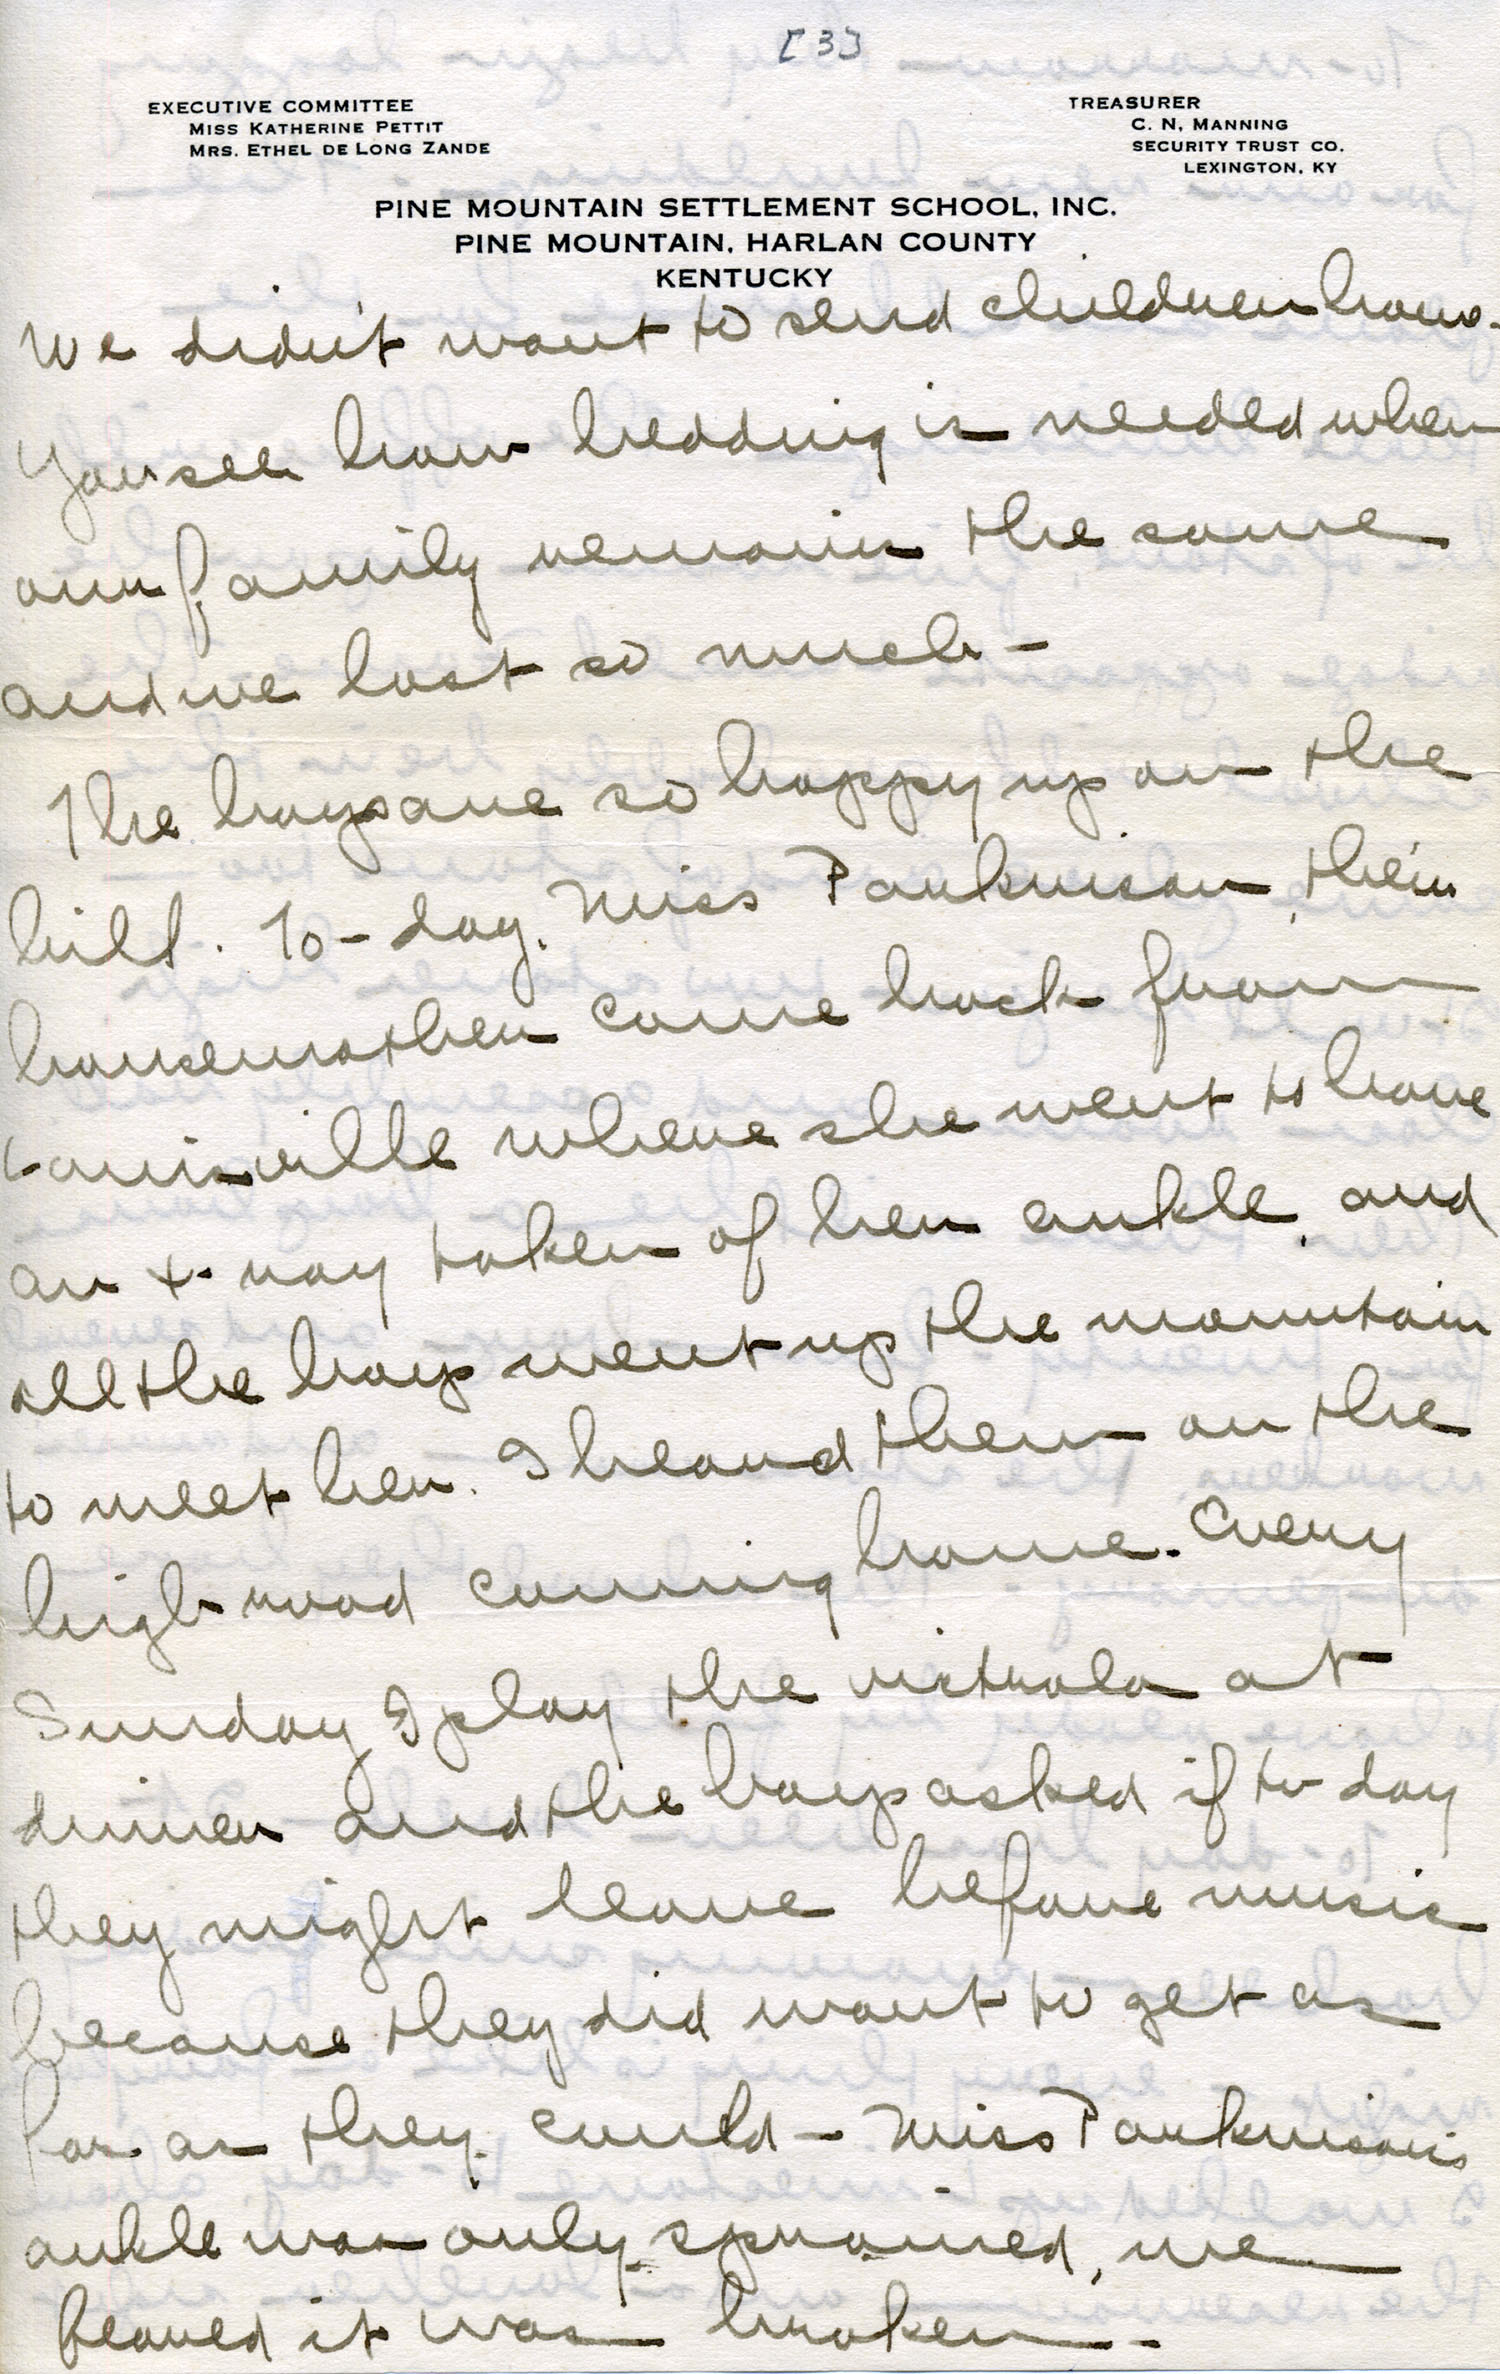 [3]
EXECUTIVE COMMITTEE
MISS KATHERINE PETTIT
MRS. ETHEL DE LONG ZANDE
TREASURER
C. N. MANNING
SECURITY TRUST CO.
LEXINGTON, KY
PINE MOUNTAIN SETTLEMENT SCHOOL, INC.
PINE MOUNTAIN, HARLAN COUNTY
KENTUCKY
We didn't want to send children home.
You see how bedding is needed when
our family remains the same
and we lost so much -
The boys are so happy up on the
hill. To-day, Miss Parkinson, their
housemother came back from
Louisville where she went to have
an x-ray taken of her ankle, and
all the boys went up the mountain
to meet her. I heard them on the
high road coming home. Every
Sunday I play the victrola at
dinner and the boys asked if to-day
they might leave before music
because they did want to get as
far as they could - Miss Parkinson's
ankle was only sprained, we
feared it was broken -